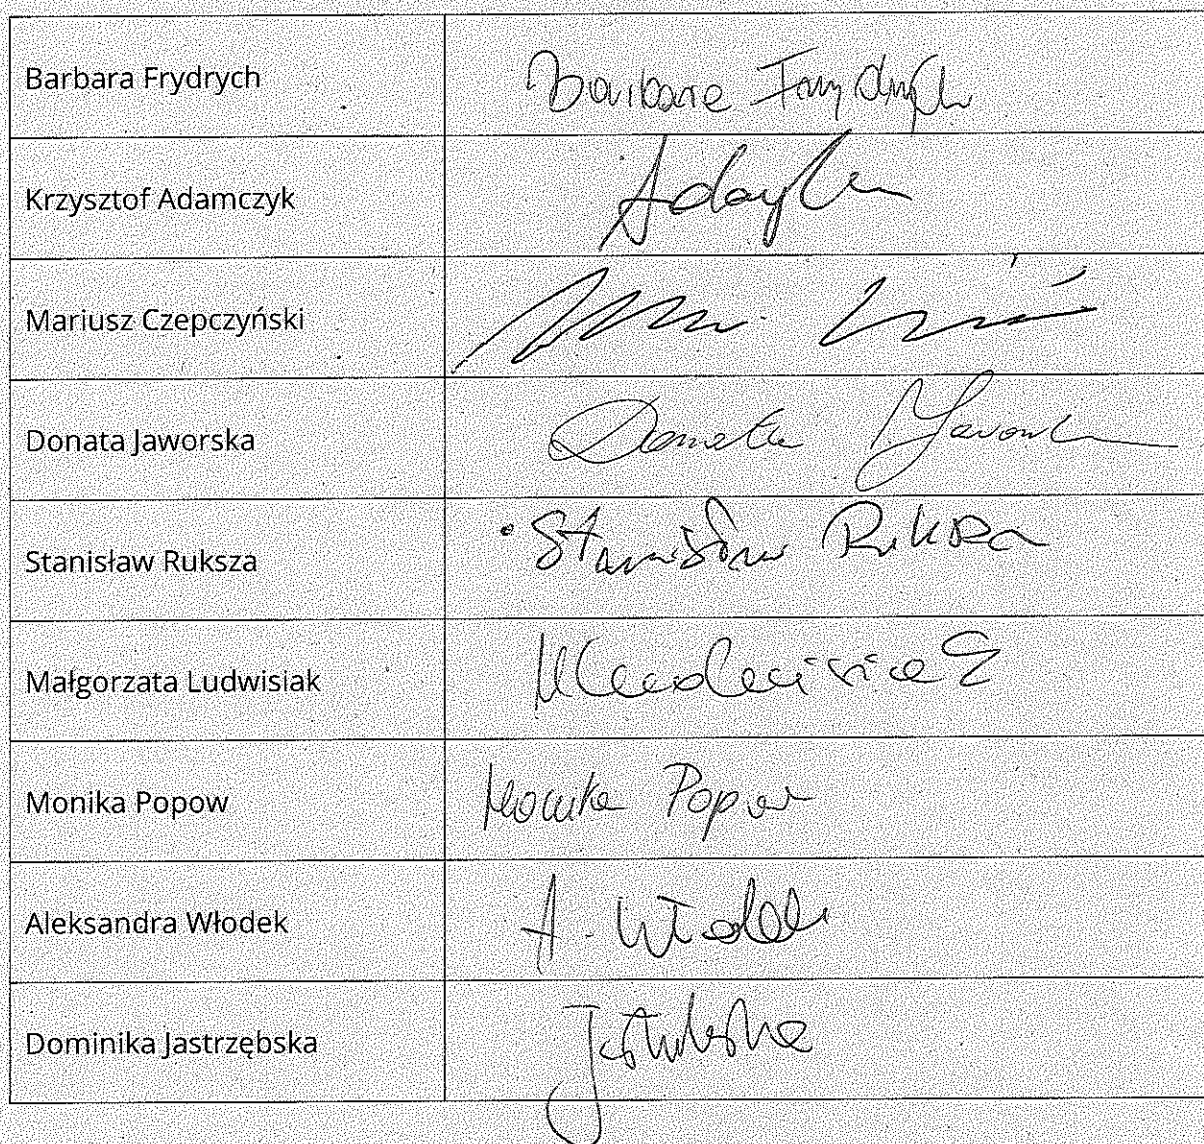 Barbara Frydrych Barbara Frydrych
Krzysztof Adamczyk
Mariusz Czepczyński
Donata Jaworska Donata
Stanisław Ruksza Stanisław Ruksza
Małgorzata Ludwisiak
Monika Popow Monika Popow
Aleksandra Włodek A. Włodek
Dominika Jastrzębska